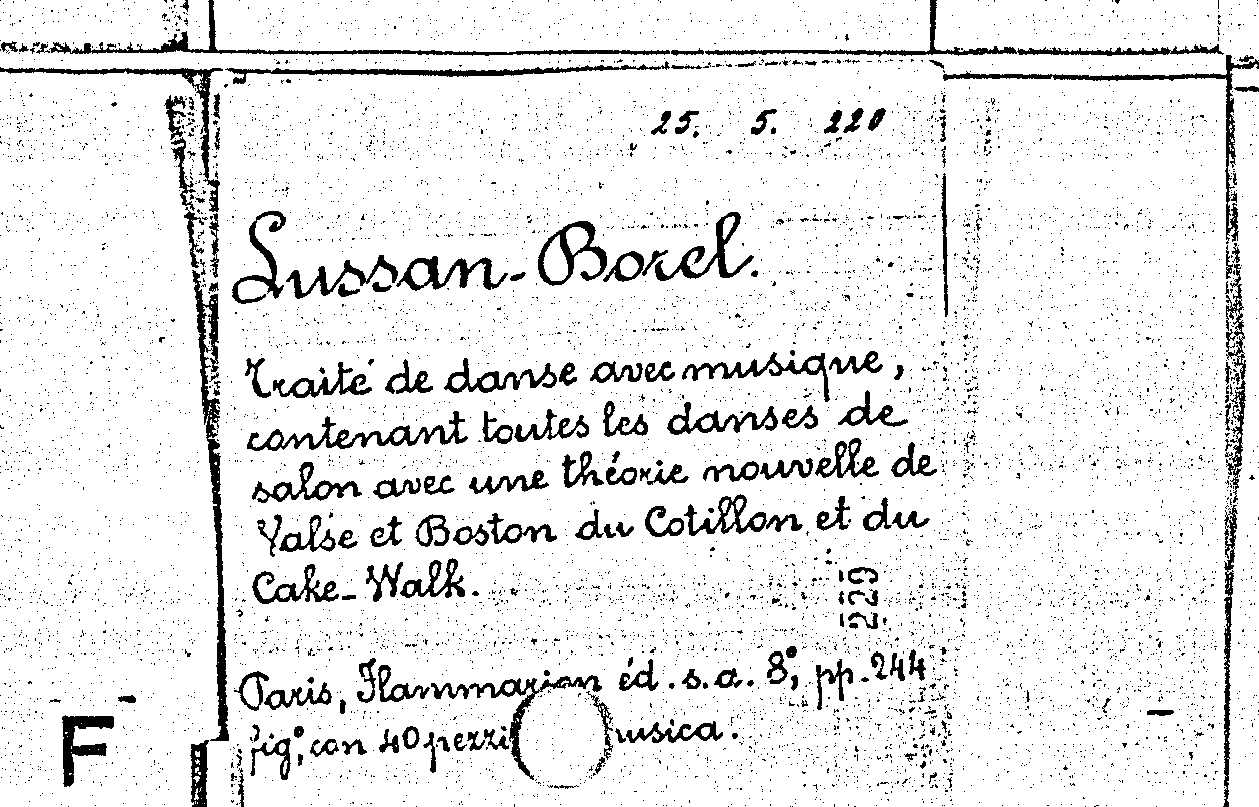 25. 5. 220
Lussan-Borel.
Traité de danse avec musique,
contenant toutes les danses de
salon avec une théorie nouvelle de
Valse et Boston du Cotillon et du
Cake-Walk.
229
Paris, Flammarion éd. s.a. 8°, pp. 244
fig°, con 40 pezzi musica.
F